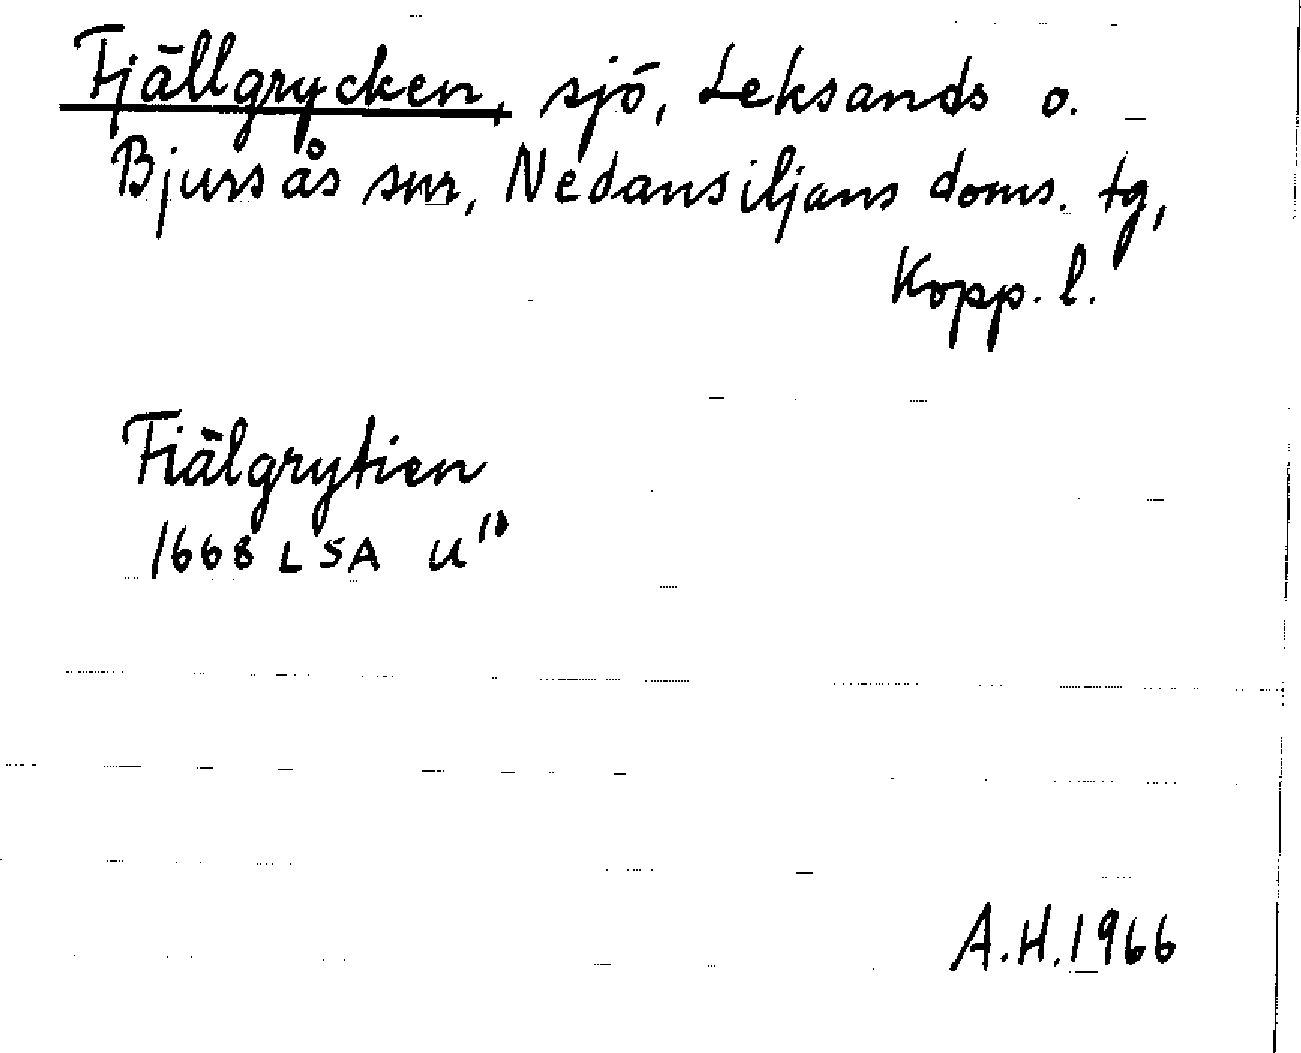 Fjällgrycken, sjö, Leksands o.
Bjursås snr, Nedansiljans doms. tg,
Kopp. l.
Fiälgrytien
1668 LSA U"
A.H. 1966